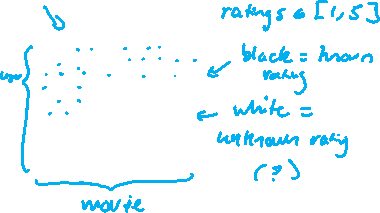 ratings ∈ [1, 5]
black = known
rating
user
white =
unknown rating
(?)
movie